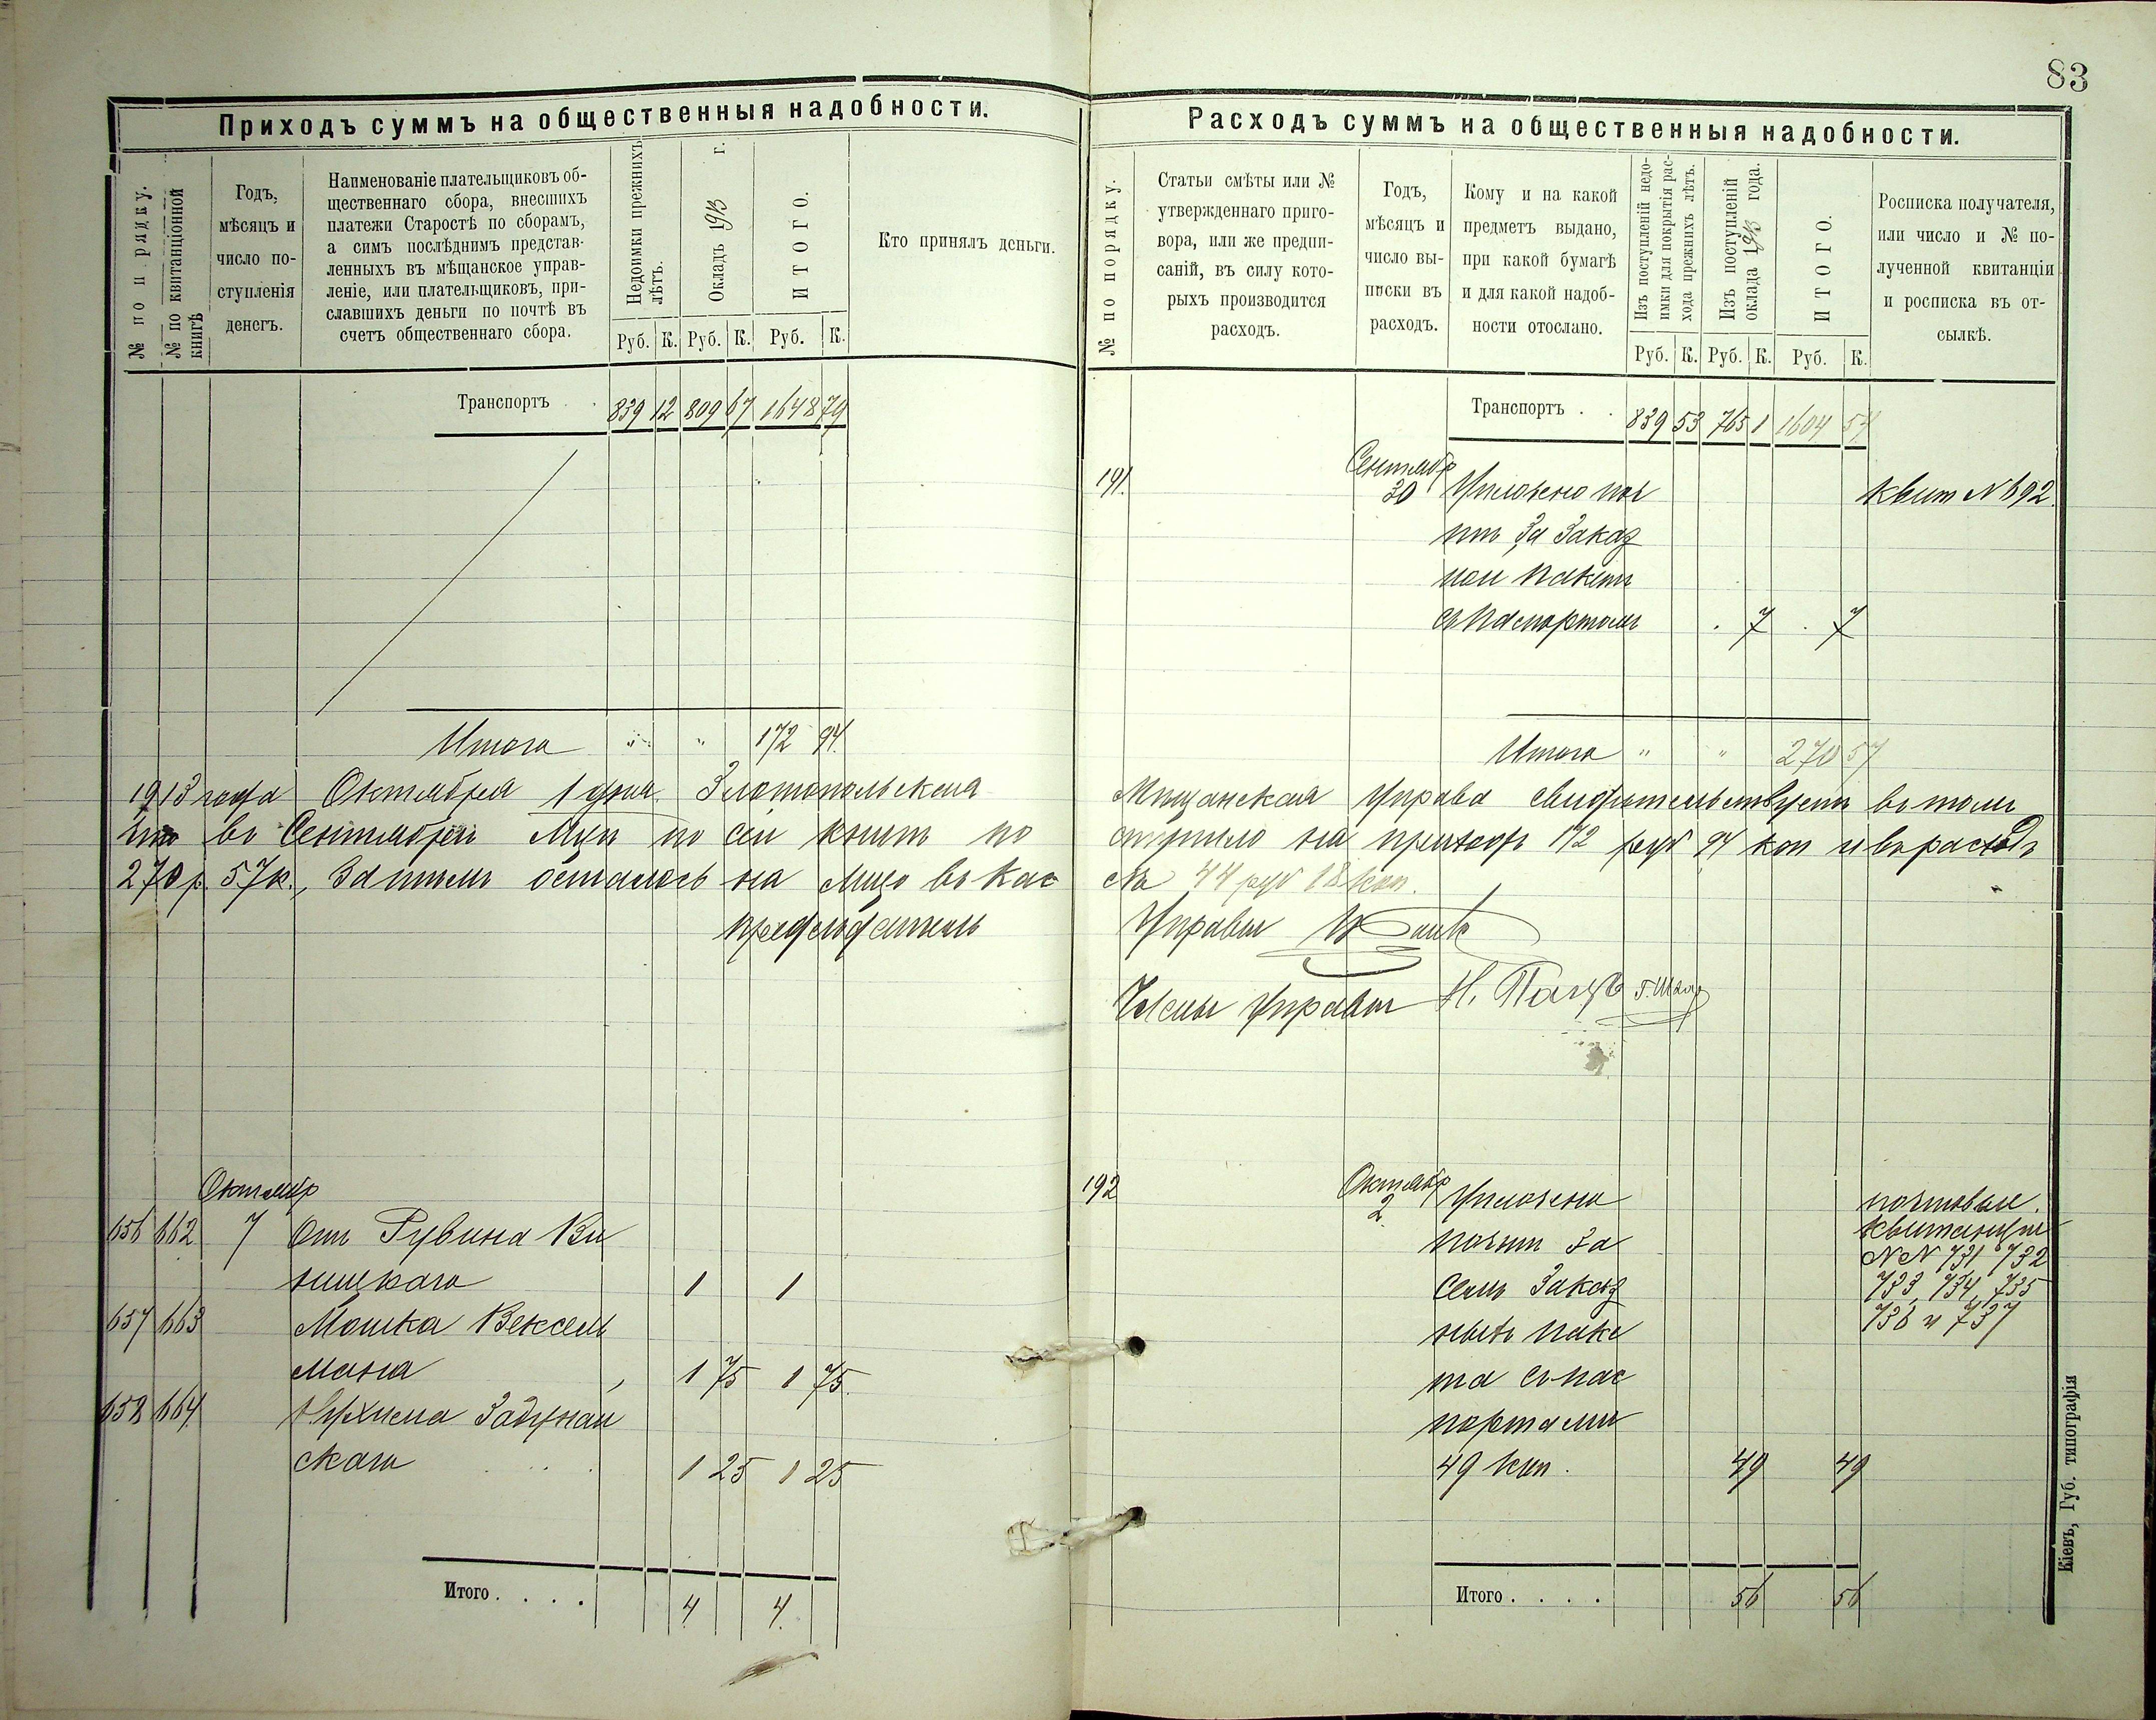 83
Приходъ суммъ на общественныя надобности.
№ по порядку.
№ по квитанціонной книгѣ
Годъ,
мѣсяцъ и
число по-
ступленія
денегъ.
Наименованіе плательщиковъ об-
щественнаго сбора, внесшихъ
платежи Старостѣ по сборамъ,
а симъ послѣднимъ представ-
ленныхъ въ мѣщанское управ-
леніе, или плательщиковъ, при-
славшихъ деньги по почтѣ въ
счетъ общественнаго сбора.
Недоимки прежнихъ
лѣтъ.
Окладъ 1913 г.
ИТОГО.
Кто принялъ деньги.
Руб. К. Руб. К. Руб. К.
Транспортъ 839 12 809 67 1648 79
Итого " " 172 94
1913 года Октября 1 дня Златопольская
что въ Сентябрѣ Мцѣ по сей книгѣ по
270 р. 57 к., Затѣмъ осталось на лицо въ Кас
Предсѣдатель
Октябр
656 662 7 Отъ Рувина Ви
ницкаго 1 1
657 663 Мошка Вексель
мана 1 75 1 75
658 664 Нухима Задунай
скаго 1 25 1 25
Итого . . . . 4 4
Расходъ суммъ на общественныя надобности.
№ по порядку.
Статьи смѣты или №
утвержденнаго приго-
вора, или же предпи-
саній, въ силу кото-
рыхъ производится
расходъ.
Годъ,
мѣсяцъ и
число вы-
писки въ
расходъ.
Кому и на какой
предметъ выдано,
при какой бумагѣ
и для какой надоб-
ности отослано.
Изъ поступленій недо-
имки для покрытія рас-
хода прежнихъ лѣтъ.
Изъ поступленій
оклада 1913 года.
ИТОГО.
Росписка получателя,
или число и № по-
лученной квитанціи
и росписка въ от-
сылкѣ.
Руб. К. Руб. К. Руб. К.
Транспортъ . . 839 53 765 1 1604 54
191. Сентябр
30 Уплочено поч квит № 692
тѣ За Заказ
ной пакетъ
съ Паспортомъ . 7 . 7
Итого " " 270 57
Мѣщанская Управа свидѣтельствуетъ въ томъ
на приходъ 172 руб 94 коп и въ расходъ
сѣ 44 руб 18 коп.
Управы
Члены Управы
192 Октябр
2 Уплочено почтовые
почтѣ За квитанціи
Семь Заказ №№ 731 732
ныхъ паке 733, 734, 735
та съ пас 736 и 737
портами
49 коп. 49 49
Итого . . . . 56 56
Кіевъ, Губ. типографія